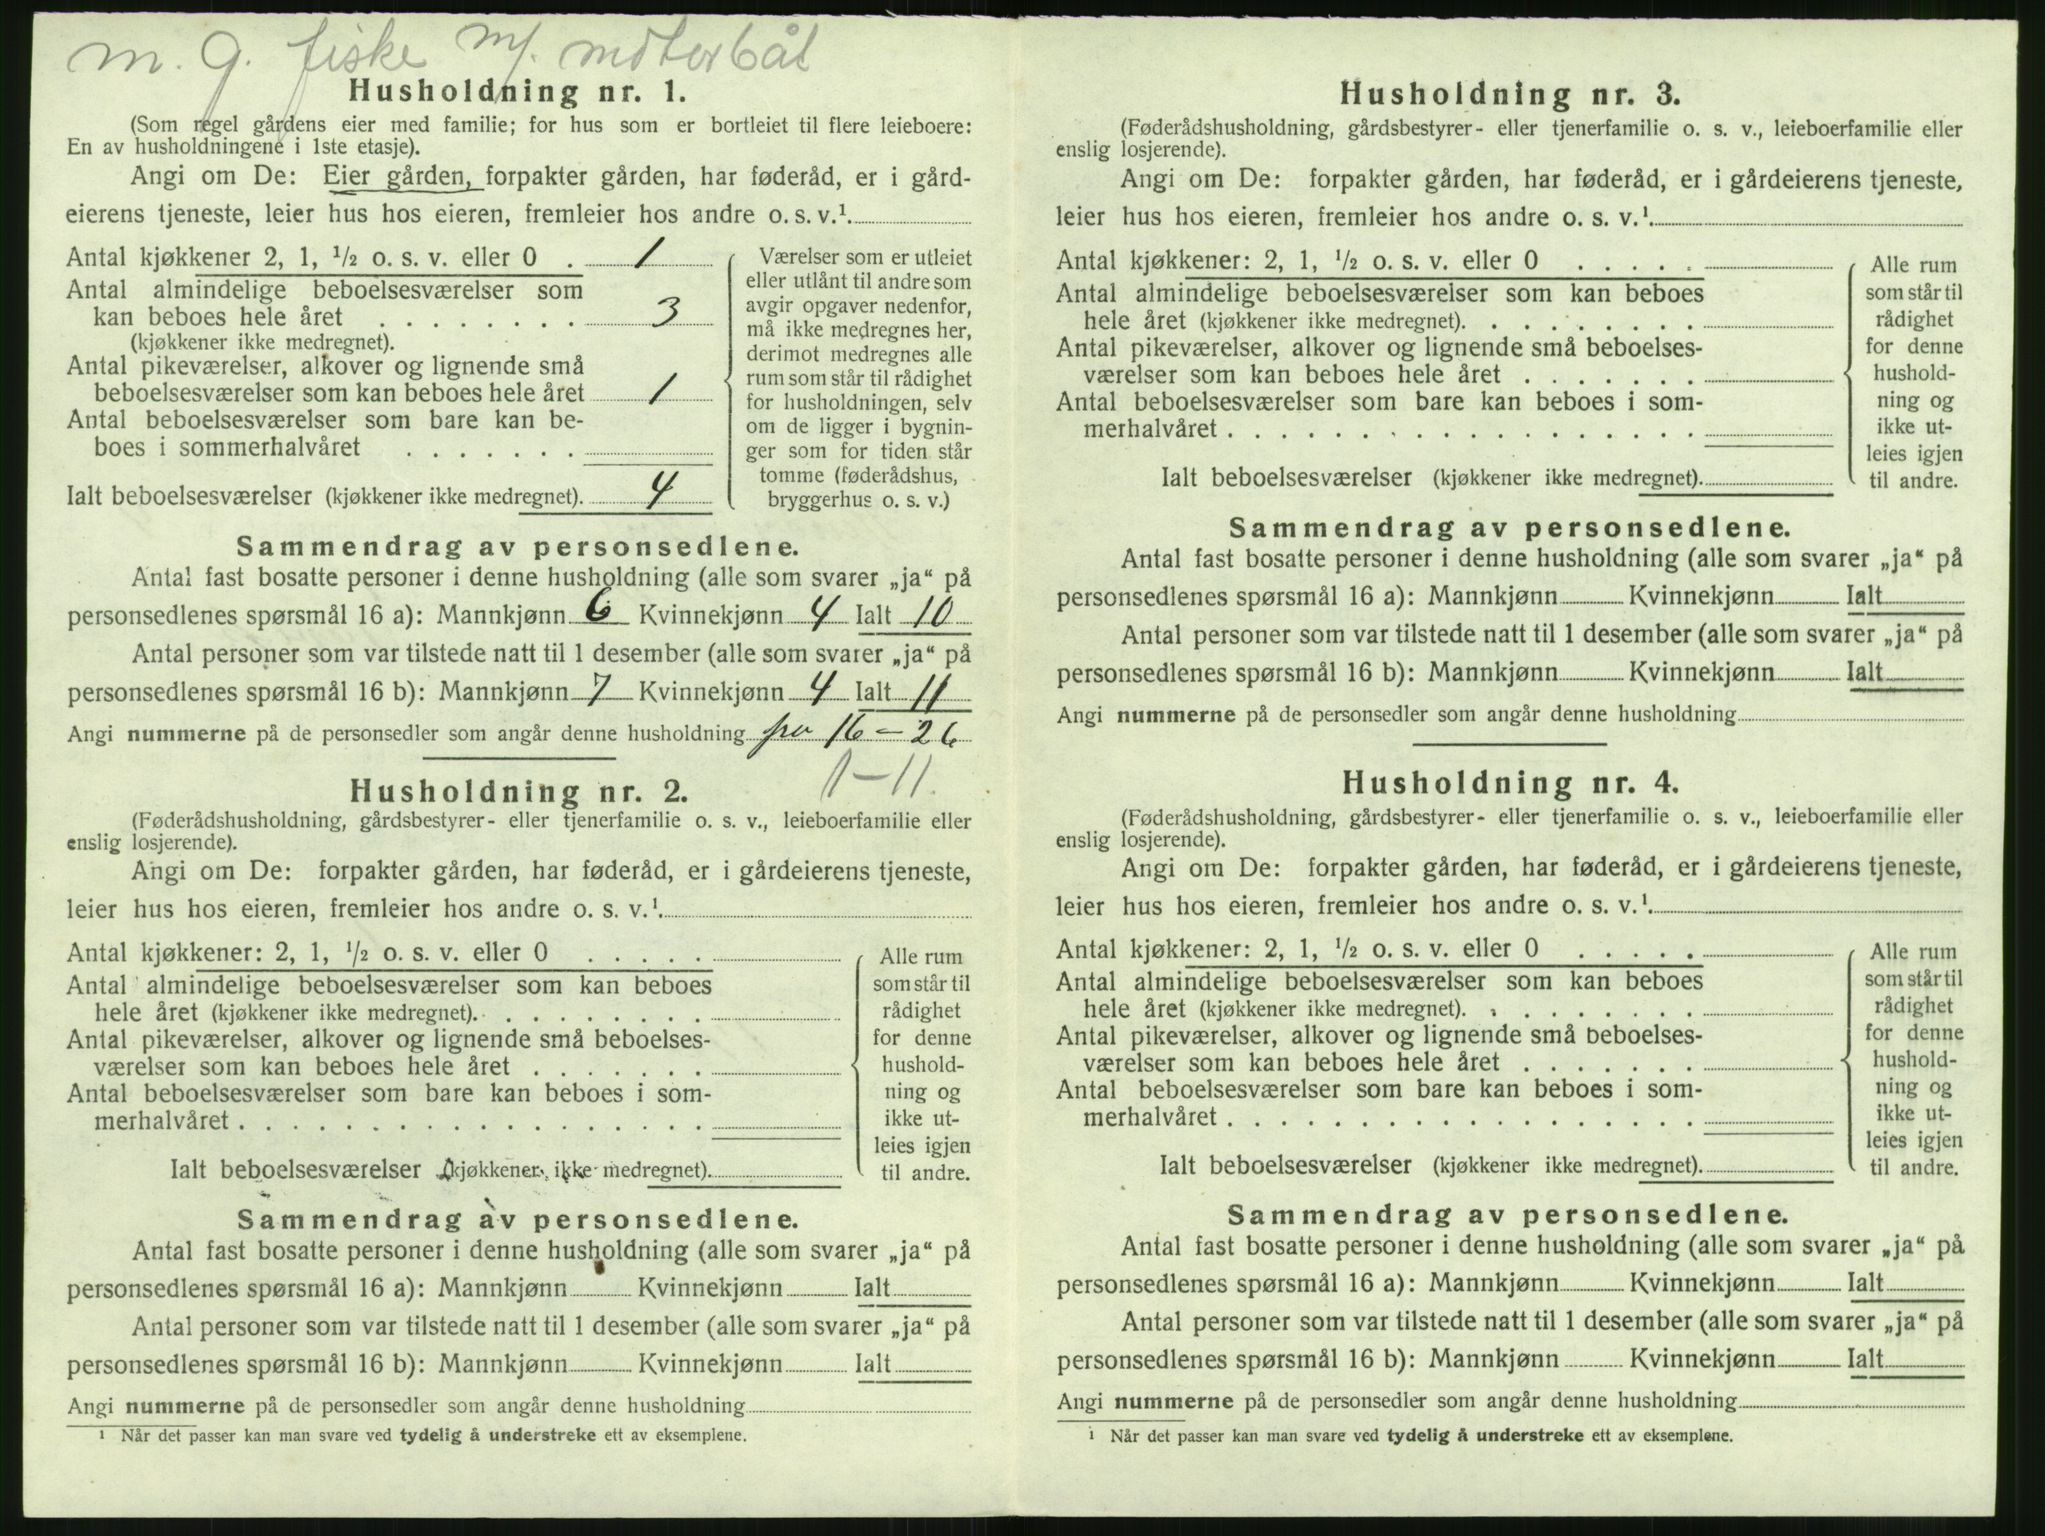 m. g. fiske m/. motorbåt
Husholdning nr. 1.
(Som regel gårdens eier med familie; for hus som er bortleiet til flere leieboere:
En av husholdningene i 1ste etasje).
Angi om De: Eier gården, forpakter gården, har føderåd, er i gård-
eierens tjeneste, leier hus hos eieren, fremleier hos andre o. s. v.¹
Antal kjøkkener 2, 1, ½ o. s. v. eller 0 . 1
Antal almindelige beboelsesværelser som
kan beboes hele året . . . . . . . . 3
(kjøkkener ikke medregnet).
Antal pikeværelser, alkover og lignende små
beboelsesværelser som kan beboes hele året 1
Antal beboelsesværelser som bare kan be-
boes i sommerhalvåret . . . . . . .
Ialt beboelsesværelser (kjøkkener ikke medregnet). 4
Værelser som er utleiet
eller utlånt til andre som
avgir opgaver nedenfor,
må ikke medregnes her,
derimot medregnes alle
rum som står til rådighet
for husholdningen, selv
om de ligger i bygnin-
ger som for tiden står
tomme (føderådshus,
bryggerhus o. s. v.)
Sammendrag av personsedlene.
Antal fast bosatte personer i denne husholdning (alle som svarer „ja“ på
personsedlenes spørsmål 16 a): Mannkjønn 6 Kvinnekjønn 4 Ialt 10
Antal personer som var tilstede natt til 1 desember (alle som svarer „ja“ på
personsedlenes spørsmål 16 b): Mannkjønn 7 Kvinnekjønn 4 Ialt 11
Angi nummerne på de personsedler som angår denne husholdning fra 16 – 26
1–11.
Husholdning nr. 2.
(Føderådshusholdning, gårdsbestyrer- eller tjenerfamilie o. s. v., leieboerfamilie eller
enslig losjerende).
Angi om De: forpakter gården, har føderåd, er i gårdeierens tjeneste,
leier hus hos eieren, fremleier hos andre o. s. v.¹
Antal kjøkkener: 2, 1, ½ o. s. v. eller 0 . . . . .
Antal almindelige beboelsesværelser som kan beboes
hele året (kjøkkener ikke medregnet). . . . . . . . .
Antal pikeværelser, alkover og lignende små beboelses-
værelser som kan beboes hele året . . . . . . .
Antal beboelsesværelser som bare kan beboes i som-
merhalvåret . . . . . . . . . . . . . . . . . .
Ialt beboelsesværelser (kjøkkener ikke medregnet).
Alle rum
som står til
rådighet
for denne
hushold-
ning og
ikke ut-
leies igjen
til andre.
Sammendrag av personsedlene.
Antal fast bosatte personer i denne husholdning (alle som svarer „ja“ på
personsedlenes spørsmål 16 a): Mannkjønn Kvinnekjønn Ialt
Antal personer som var tilstede natt til 1 desember (alle som svarer „ja“ på
personsedlenes spørsmål 16 b): Mannkjønn Kvinnekjønn Ialt
Angi nummerne på de personsedler som angår denne husholdning
¹ Når det passer kan man svare ved tydelig å understreke ett av eksemplene.
Husholdning nr. 3.
(Føderådshusholdning, gårdsbestyrer- eller tjenerfamilie o. s. v., leieboerfamilie eller
enslig losjerende).
Angi om De: forpakter gården, har føderåd, er i gårdeierens tjeneste,
leier hus hos eieren, fremleier hos andre o. s. v.¹
Antal kjøkkener: 2, 1, ½ o. s. v. eller 0 . . . . .
Antal almindelige beboelsesværelser som kan beboes
hele året (kjøkkener ikke medregnet). . . . . . . . .
Antal pikeværelser, alkover og lignende små beboelses-
værelser som kan beboes hele året . . . . . . .
Antal beboelsesværelser som bare kan beboes i som-
merhalvåret . . . . . . . . . . . . . . . . . .
Ialt beboelsesværelser (kjøkkener ikke medregnet).
Alle rum
som står til
rådighet
for denne
hushold-
ning og
ikke ut-
leies igjen
til andre.
Sammendrag av personsedlene.
Antal fast bosatte personer i denne husholdning (alle som svarer „ja“ på
personsedlenes spørsmål 16 a): Mannkjønn Kvinnekjønn Ialt
Antal personer som var tilstede natt til 1 desember (alle som svarer „ja“ på
personsedlenes spørsmål 16 b): Mannkjønn Kvinnekjønn Ialt
Angi nummerne på de personsedler som angår denne husholdning
Husholdning nr. 4.
(Føderådshusholdning, gårdsbestyrer- eller tjenerfamilie o. s. v., leieboerfamilie eller
enslig losjerende).
Angi om De: forpakter gården, har føderåd, er i gårdeierens tjeneste,
leier hus hos eieren, fremleier hos andre o. s. v.¹
Antal kjøkkener: 2, 1, ½ o. s. v. eller 0 . . . . .
Antal almindelige beboelsesværelser som kan beboes
hele året (kjøkkener ikke medregnet). . . . . . . . .
Antal pikeværelser, alkover og lignende små beboelses-
værelser som kan beboes hele året . . . . . . .
Antal beboelsesværelser som bare kan beboes i som-
merhalvåret . . . . . . . . . . . . . . . . . .
Ialt beboelsesværelser (kjøkkener ikke medregnet).
Alle rum
som står til
rådighet
for denne
hushold-
ning og
ikke ut-
leies igjen
til andre.
Sammendrag av personsedlene.
Antal fast bosatte personer i denne husholdning (alle som svarer „ja“ på
personsedlenes spørsmål 16 a): Mannkjønn Kvinnekjønn Ialt
Antal personer som var tilstede natt til 1 desember (alle som svarer „ja“ på
personsedlenes spørsmål 16 b): Mannkjønn Kvinnekjønn Ialt
Angi nummerne på de personsedler som angår denne husholdning
¹ Når det passer kan man svare ved tydelig å understreke ett av eksemplene.